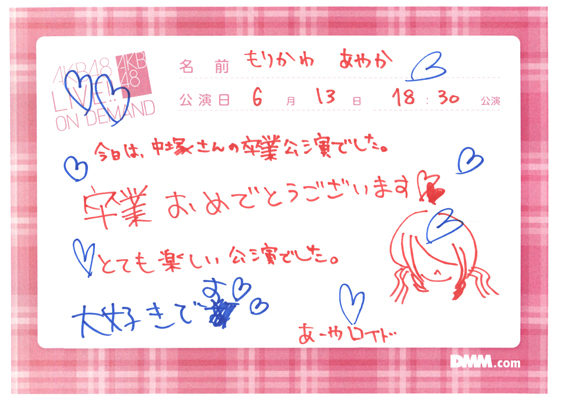 AKB48
LIVE!!
ON DEMAND
AKB
48
名前 もりかわ あやか
公演日 6月 13日 18:30 公演
今日は、中塚さんの卒業公演でした。
卒業 おめでとうございます
とても楽しい公演でした。
大好きです
あーやロイド
DMM.com